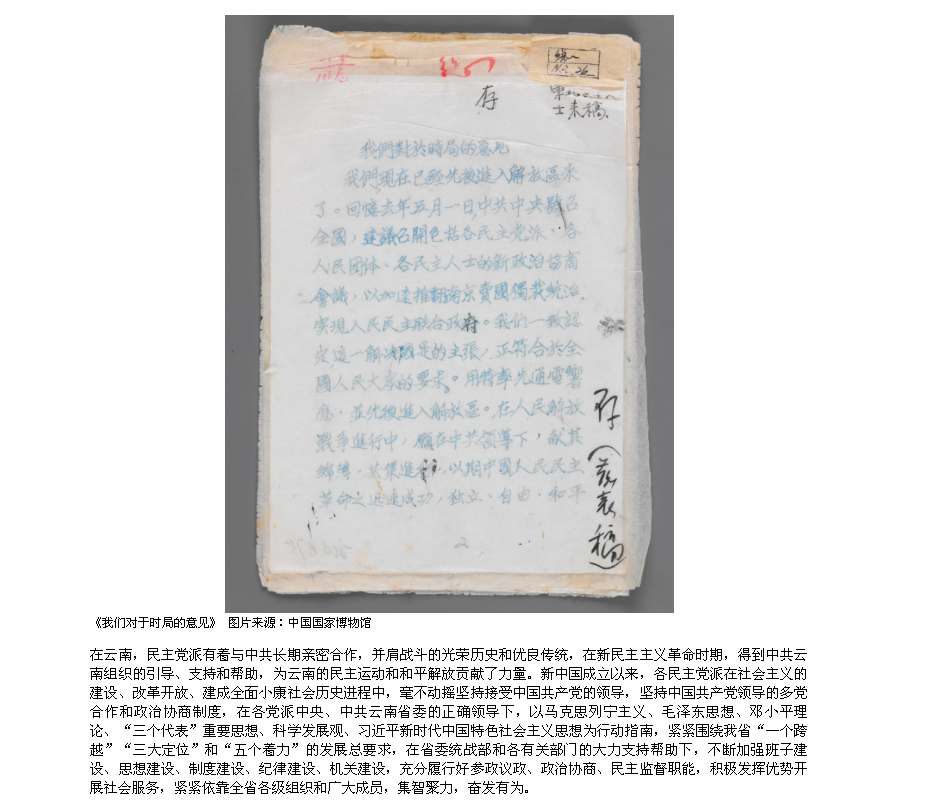 存
士来稿
我們對於時局的意見
我們現在已經先後進入解放區来
了。回憶去年五月一日中共中央號召
全國，建議召開包括各民主党派、各
人民团体、各民主人士的新政治協商
會議，以加速推翻南京賣國獨裁統治，
实現人民民主联合政府。我们一致認
定這一解决國是的主張，正符合於全
國人民大众的要求。用特率先通電響
應，並先後進入解放區。在人民解放
戰爭進行中，願在中共領導下，献其
綿薄，共策進行，以期中國人民民主
革命之迅速成功，独立、自由、和平
2
存（发表稿）
《我们对于时局的意见》 图片来源：中国国家博物馆
在云南，民主党派有着与中共长期亲密合作，并肩战斗的光荣历史和优良传统，在新民主主义革命时期，得到中共云
南组织的引导、支持和帮助，为云南的民主运动和和平解放贡献了力量。新中国成立以来，各民主党派在社会主义的
建设、改革开放、建成全面小康社会历史进程中，毫不动摇坚持接受中国共产党的领导，坚持中国共产党领导的多党
合作和政治协商制度，在各党派中央、中共云南省委的正确领导下，以马克思列宁主义、毛泽东思想、邓小平理
论、“三个代表”重要思想、科学发展观、习近平新时代中国特色社会主义思想为行动指南，紧紧围绕我省“一个跨
越”“三大定位”和“五个着力”的发展总要求，在省委统战部和各有关部门的大力支持帮助下，不断加强班子建
设、思想建设、制度建设、纪律建设、机关建设，充分履行好参政议政、政治协商、民主监督职能，积极发挥优势开
展社会服务，紧紧依靠全省各级组织和广大成员，集智聚力，奋发有为。